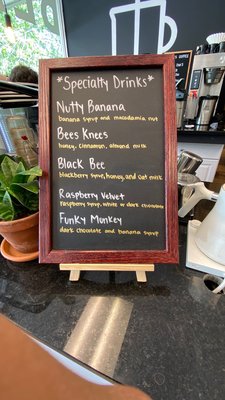 *Specialty Drinks*
Nutty Banana
banana syrup and macadamia nut
Bees Knees
honey, cinnamon, almond milk
Black Bee
blackberry syrup, honey, and oat milk
Raspberry Velvet
raspberry syrup, white or dark chocolate
Funky Monkey
dark chocolate and banana syrup